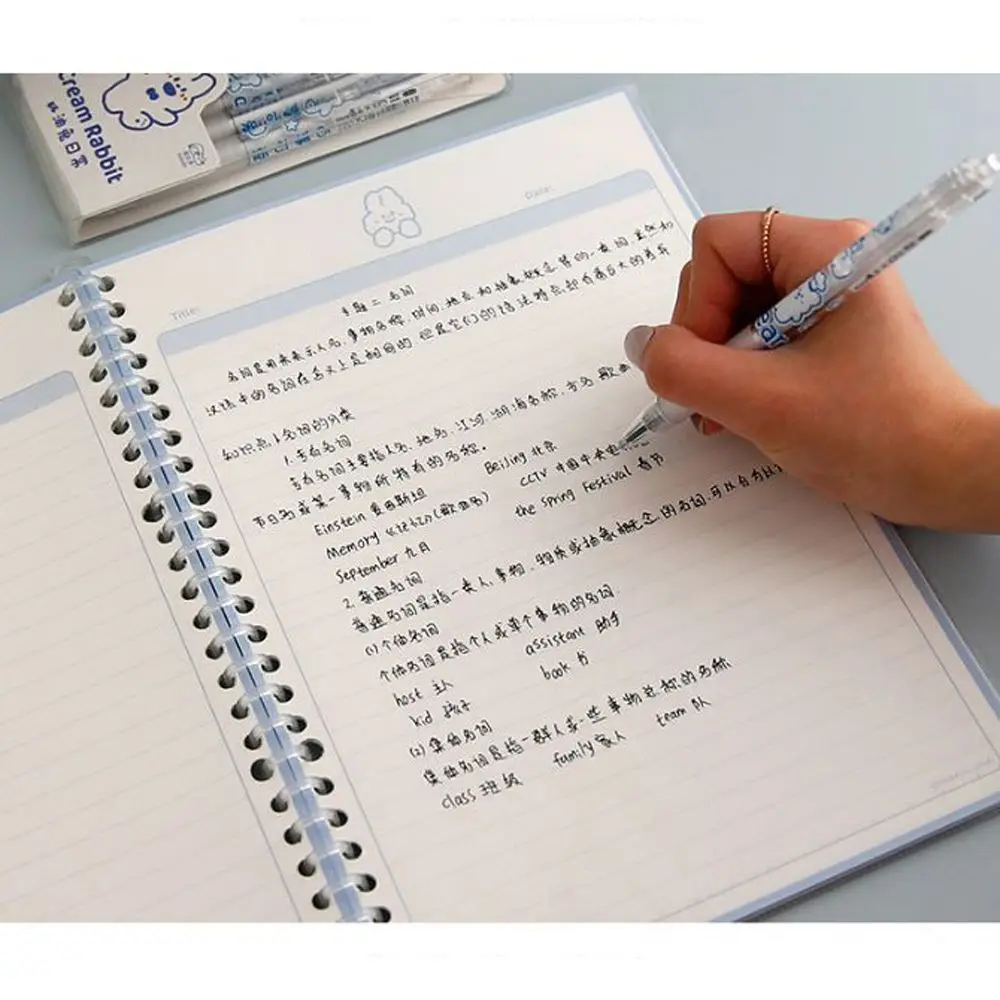 Cream Rabbit
奶油兔日常
Title:
Date:
专题二 名词
名词是用来表示人名,事物名称,时间,地点和抽象概念等的一类词,虽然和
汉语中的名词在含义上是相同的 但是它们的语法特点却有着巨大的差异
知识点1 名词的分类
1.专有名词
专有名词主要指人名,地名,江河,湖海名称,书名 歌曲
节日名或某一事物所特有的名称。
Einstein 爱因斯坦 Beijing 北京
Memory《记忆》(歌曲名) CCTV 中国中央电
September 九月 the Spring Festival 春节
2.普通名词
普通名词是指一类人,事物,物质或抽象概念的名词,可以分为以
(1)个体名词
个体名词是指个人或单个事物的名词.
host 主人 assistant 助手
kid 孩子 book 书
(2)集体名词
集体名词是指一群人或一些事物总称的名称
class 班级 family 家人 team 队